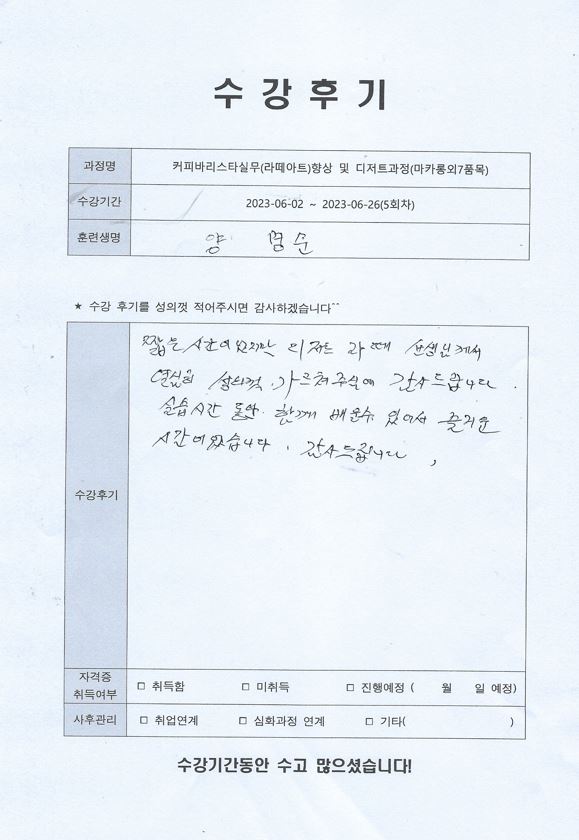 수강후기
과정명 커피바리스타실무(라떼아트)향상 및 디저트과정(마카롱외7품목)
수강기간 2023-06-02 ~ 2023-06-26(5회차)
훈련생명 양 명순
★ 수강 후기를 성의껏 적어주시면 감사하겠습니다^^
수강후기
짧은 시간이였지만 디저트 라떼 선생님께서
열심히 성의껏 가르쳐주심에 감사드립니다.
실습시간 동안 함께 배울수 있어서 즐거운
시간이였습니다. 감사드립니다,
자격증
취득여부 □ 취득함 □ 미취득 □ 진행예정 ( 월 일 예정)
사후관리 □ 취업연계 □ 심화과정 연계 □ 기타( )
수강기간동안 수고 많으셨습니다!